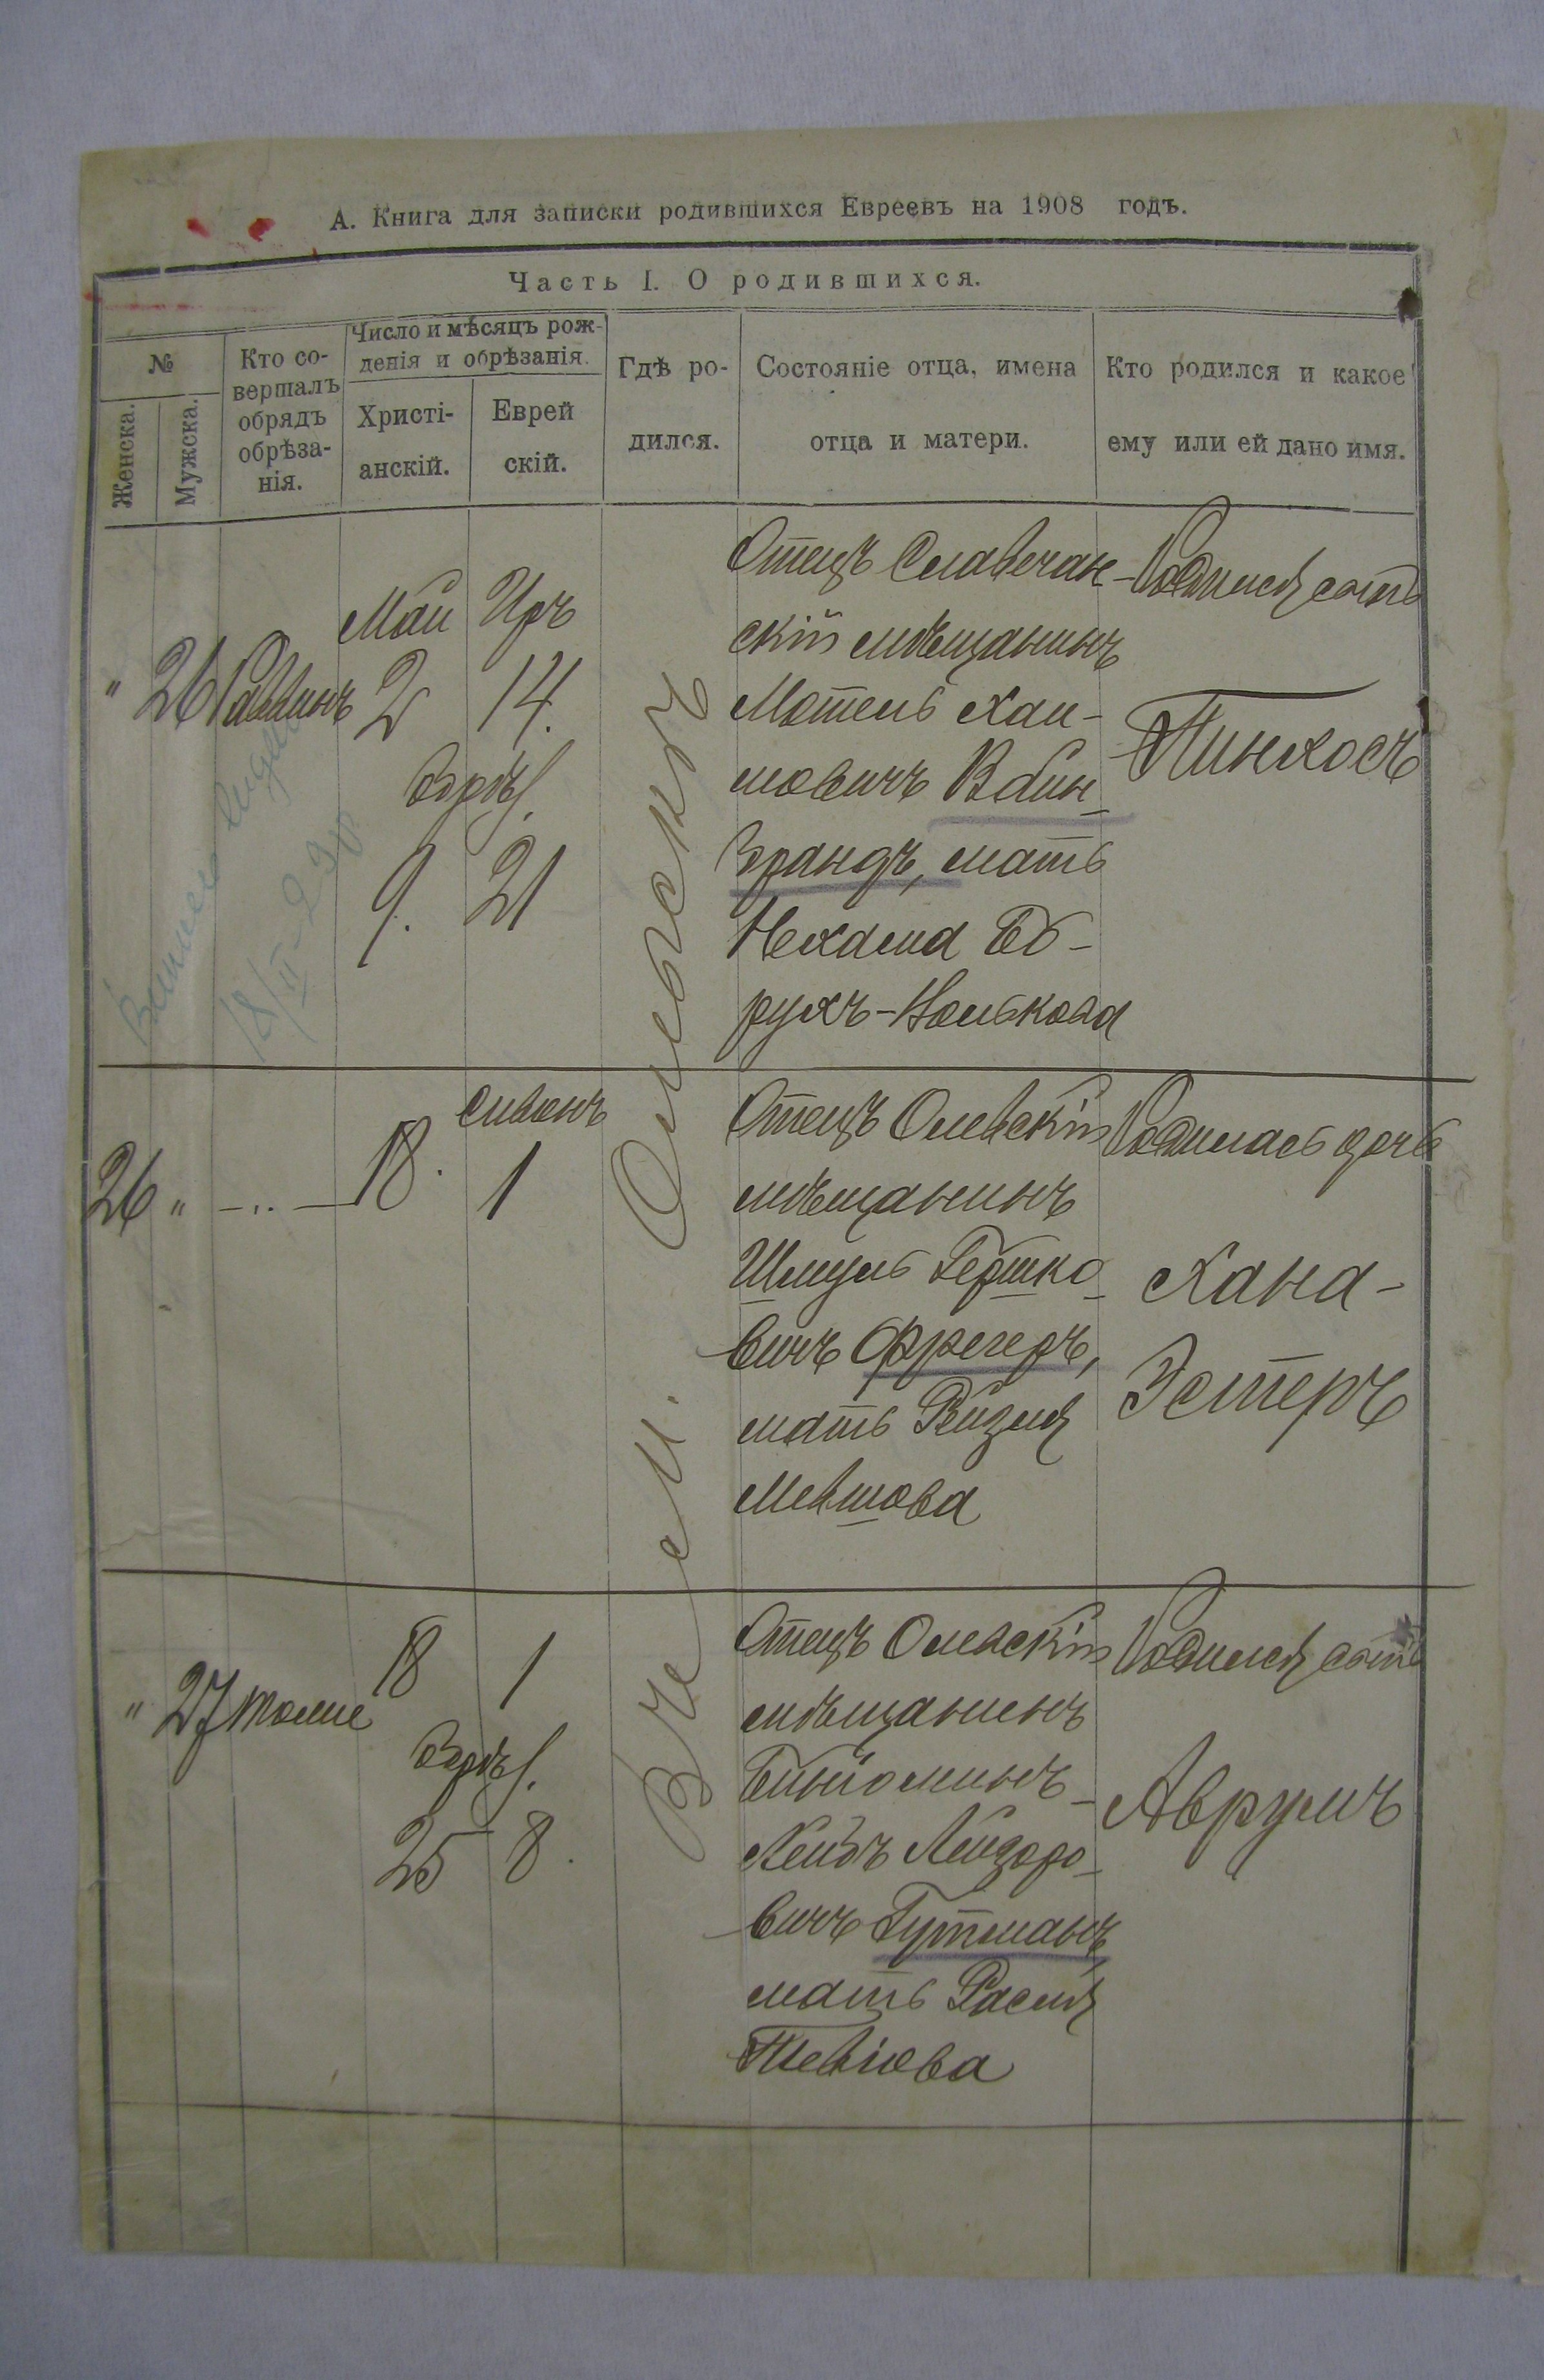 А. Книга для записки родившихся Евреевъ на 1908 годъ.
Часть I. О родившихся.
№
Женска.
Мужска.
Кто со-
вершалъ
обрядъ
обрѣза-
нія.
Число и мѣсяцъ рож-
денія и обрѣзанія.
Христі-
анскій.
Еврей
скій.
Гдѣ ро-
дился.
Состояніе отца, имена
отца и матери.
Кто родился и какое
ему или ей дано имя.
В м. Олевскъ
" 26 Раввинъ
Май Иръ
2 14.
обрѣз.
9. 21
Отецъ Славечан-
скій мѣщанинъ
Мотель Хаи-
мовичъ Вайн-
брандъ, мать
Нехама Бо-
рухъ-Нолькова
Родился сынъ
Пинхосъ
26 " – " –
Сивонъ
18. 1
Отецъ Олевскій
мѣщанинъ
Шмуль Гершко-
вичъ Фрегеръ,
мать Рейзля
Мевшова
Родилась дочь
Хана-
Эстеръ
" 27 тоже
18 1
обрѣз.
25 8.
Отецъ Олевскій
мѣщанинъ
Беньоминъ-
Лейбъ Лейзоро-
вичъ Гутманъ,
мать Расля
Тевіова
Родился сынъ
Аврумъ
18/II-29г